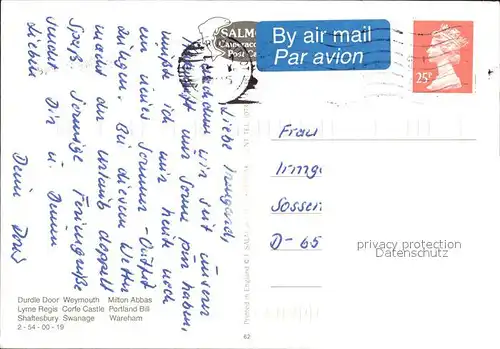 SALM
Cameracolour
Post Ca
By air mail
Par avion
25P
Liebe Irmgard,
nachdem wir seit unserer
Ankunft nur Sonne pur haben,
mußte ich mir heute noch
ein neues Sommer-Outfit
zulegen. Bei diesem Wetter
macht der Urlaub doppelt
Spaß. Sonnige Feriengrüße
sendet Dir u. Deinen
Lieben
Deine Doris
Frau
Irmg
Sossen
D-65
privacy protection
Durdle Door Weymouth Milton Abbas
Lyme Regis Corfe Castle Portland Bill
Shaftesbury Swanage Wareham
2-54-00-19
Printed in England ©
62